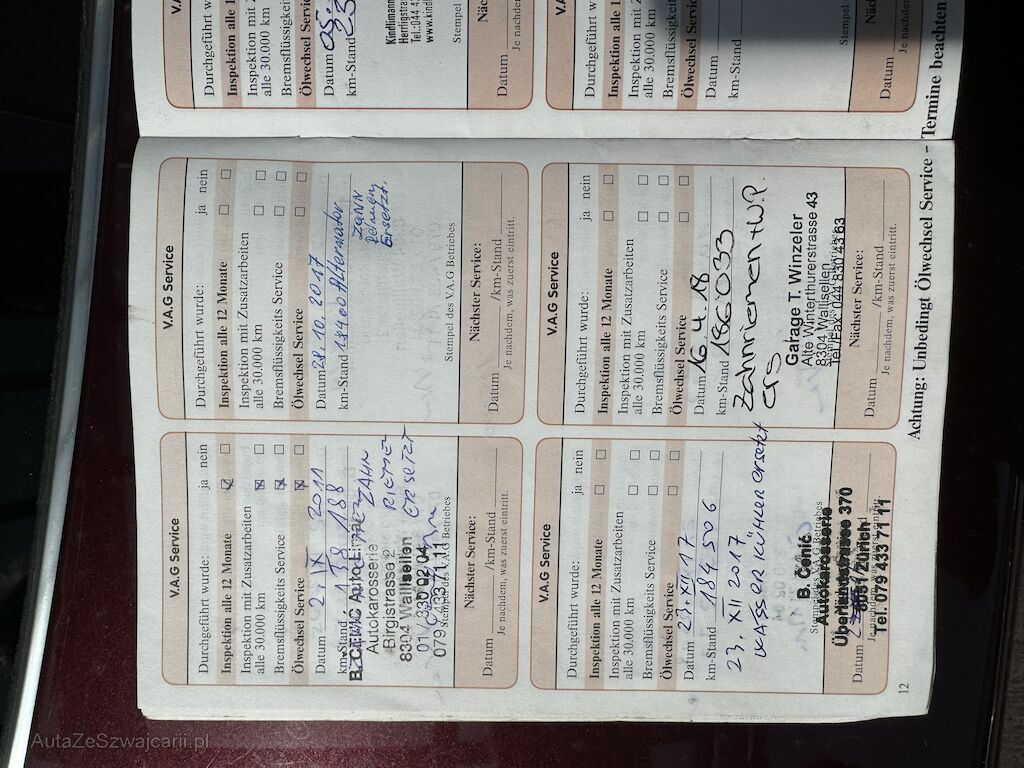 V.A.G Service
Durchgeführt wurde: ja nein
Inspektion alle 12 Monate
Inspektion mit Zusatzarbeiten
alle 30.000 km
Bremsflüssigkeits Service
Ölwechsel Service
Datum 2. IX 2011
km-Stand 138 188
ZAHN
RIEMEN
ERSETZT
B. CENIC Auto
Autokarosserie
Birgistrasse 2
8304 Wallisellen
01 830 02 04
079 433 71 11
Stempel des V.A.G Betriebes
Nächster Service:
Datum /km-Stand
Je nachdem, was zuerst eintritt.
V.A.G Service
Durchgeführt wurde: ja nein
Inspektion alle 12 Monate
Inspektion mit Zusatzarbeiten
alle 30.000 km
Bremsflüssigkeits Service
Ölwechsel Service
Datum 28.10.2017
km-Stand Alternator
Zahn
Ersetzt.
Stempel des V.A.G Betriebes
Nächster Service:
Datum /km-Stand
Je nachdem, was zuerst eintritt.
V.A.G Service
Durchgeführt wurde: ja nein
Inspektion alle 12 Monate
Inspektion mit Zusatzarbeiten
alle 30.000 km
Bremsflüssigkeits Service
Ölwechsel Service
Datum 23.XII 17
km-Stand 184 506
23. XII 2017
WASSER KÜHLER ersetzt
B. Cenic
Autokarosserie
Überlandstrasse 370
8051 Zürich
Tel. 079 433 71 11
12
V.A.G Service
Durchgeführt wurde: ja nein
Inspektion alle 12 Monate
Inspektion mit Zusatzarbeiten
alle 30.000 km
Bremsflüssigkeits Service
Ölwechsel Service
Datum 16.4.18
km-Stand 186033
Zahnriemen + W.P.
ers
Garage T. Winzeler
Alte Winterthurerstrasse 43
8304 Wallisellen
Tel/Fax 044 830 43 63
Nächster Service:
Datum /km-Stand
Je nachdem, was zuerst eintritt.
Achtung: Unbedingt Ölwechsel Service – Termine beachten
V.A
Durchgeführt w
Inspektion alle 1
Inspektion mit Z
alle 30.000 km
Bremsflüssigkeits
Ölwechsel Servic
Datum
km-Stand
Kindlimann
Herrigstra
Tel.:044 4
www.kindl
Stempel
Näc
Datum
Je nachdem
V.A
Durchgeführt w
Inspektion alle 1
Inspektion mit Z
alle 30.000 km
Bremsflüssigkeits
Ölwechsel Servic
Datum
km-Stand
Stempel
Näc
Datum
Je nachdem
AutaZeSzwajcarii.pl